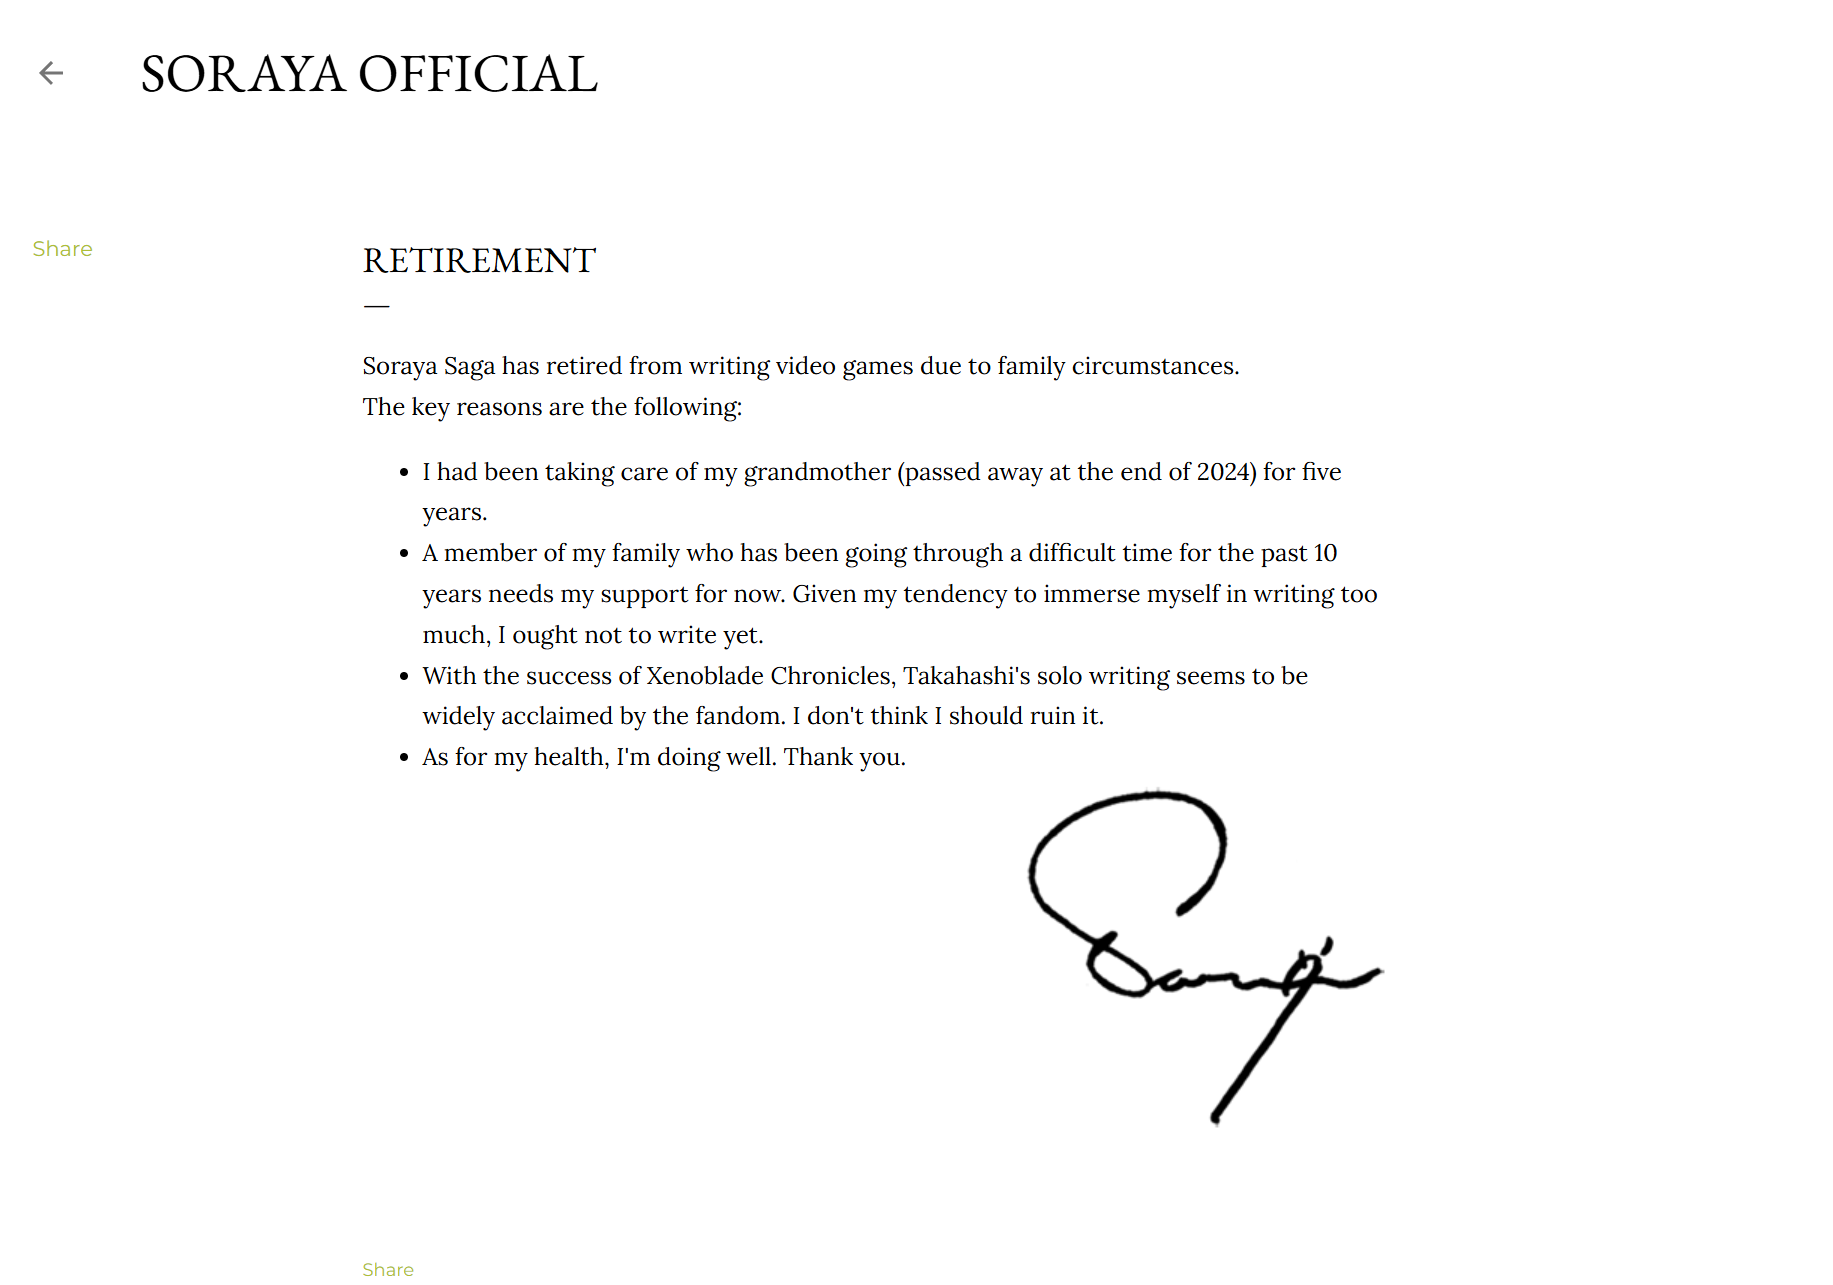 SORAYA OFFICIAL
Share
RETIREMENT
Soraya Saga has retired from writing video games due to family circumstances.
The key reasons are the following:
• I had been taking care of my grandmother (passed away at the end of 2024) for five
years.
• A member of my family who has been going through a difficult time for the past 10
years needs my support for now. Given my tendency to immerse myself in writing too
much, I ought not to write yet.
• With the success of Xenoblade Chronicles, Takahashi's solo writing seems to be
widely acclaimed by the fandom. I don't think I should ruin it.
• As for my health, I'm doing well. Thank you.
Share